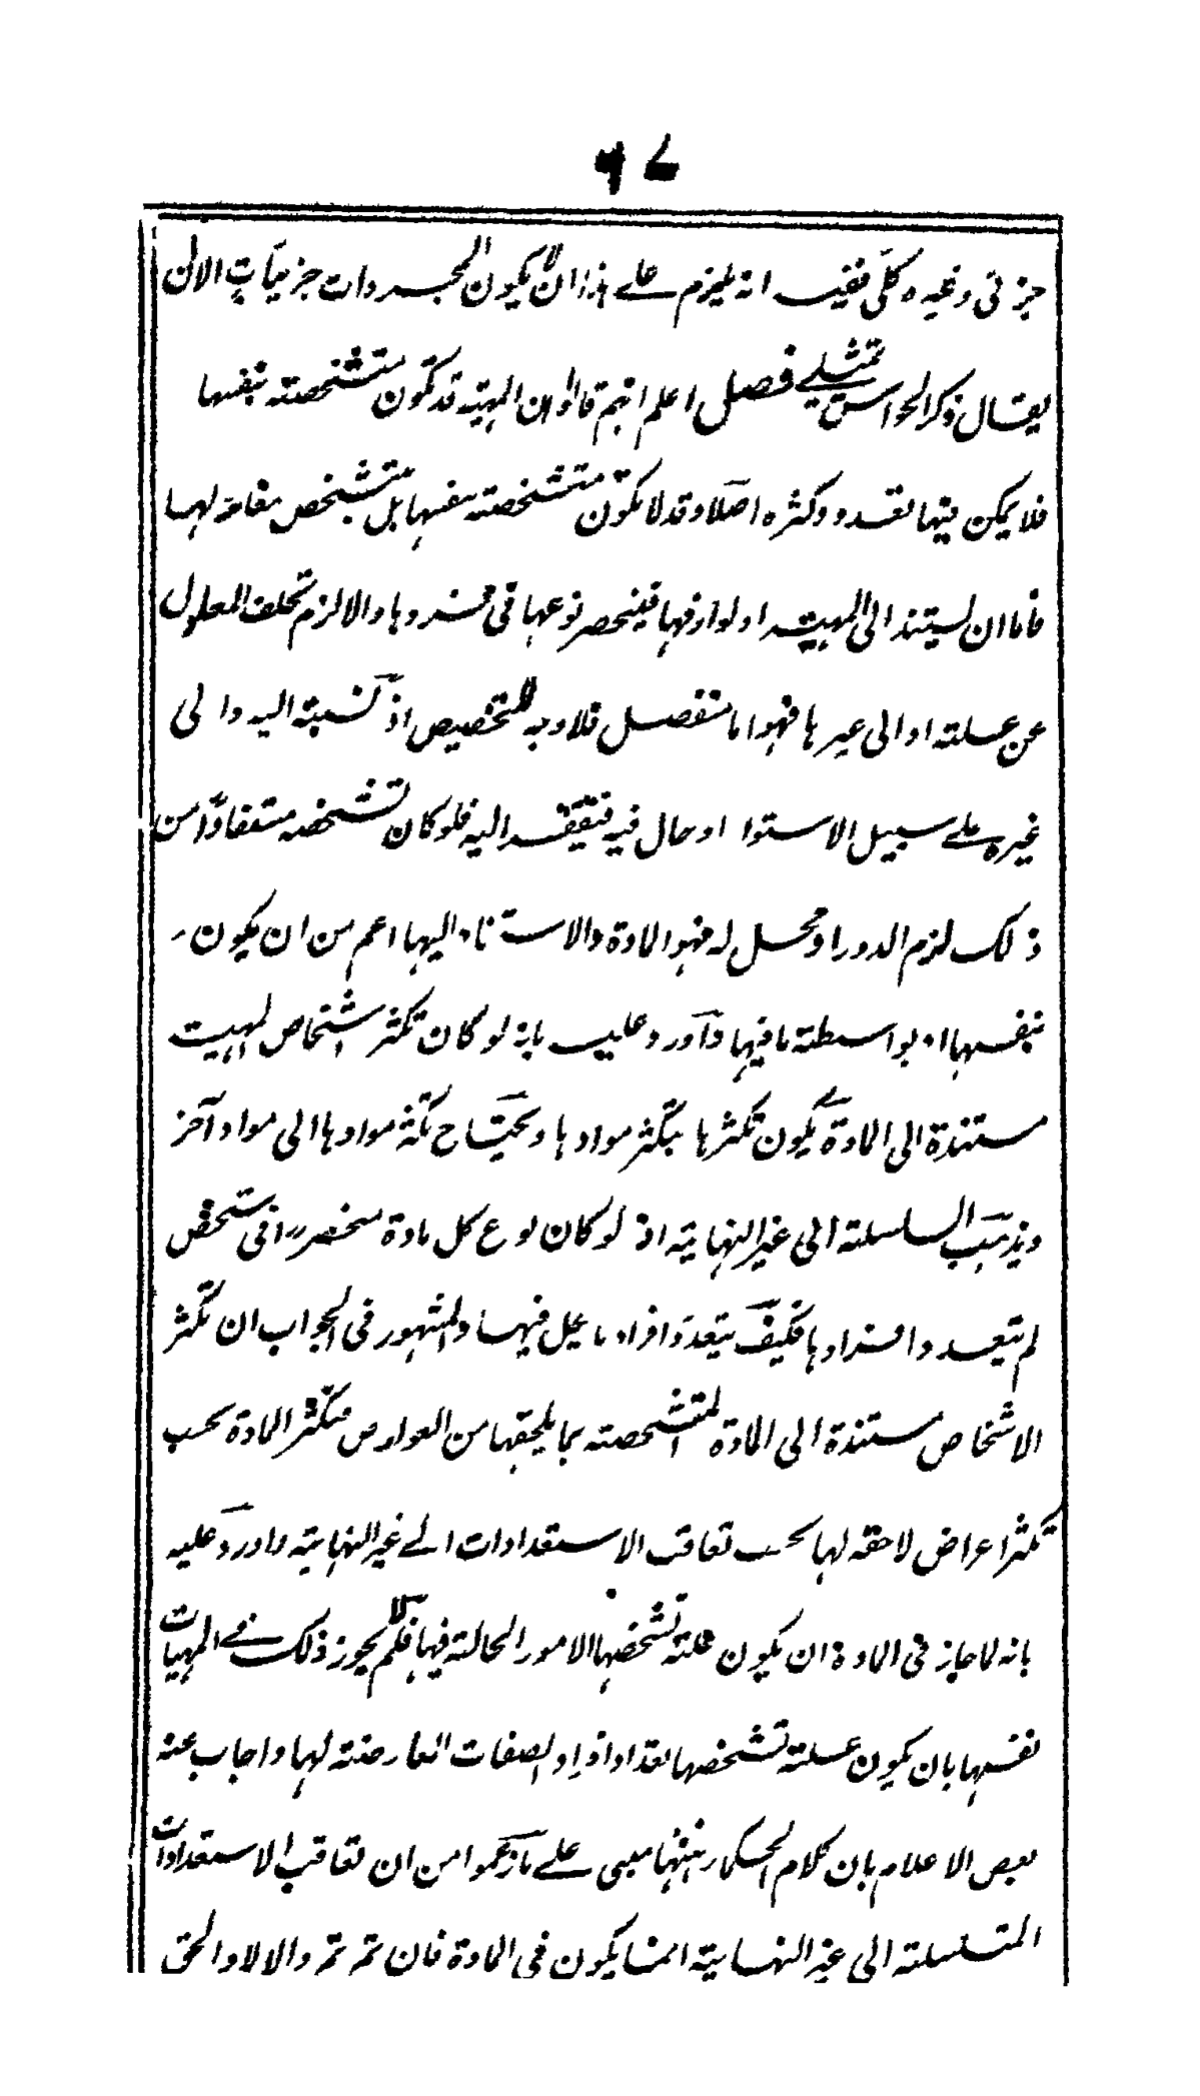 ٩٧
جزئی وغیرہ کلی ففیہ انہ یلزم علے ہذا ان لا یکون المجردات جزئیات الا ان
یقال ذکر الحواس تمثیلے فصل اعلم انہم قالوا ان المہیۃ قد تکون متشخصتہ بنفسہا
فلا یمکن فیہا تعدد وکثرہ اصلا وقد لا تکون متشخصتہ بنفسہا بل متشخص مغائر لہا
فاما ان یستند الی المہیۃ او لوازمہا فینحصر نوعہا فی فردہا والا لزم تخلف المعلول
عن علتہ او الی غیرہا فہو اما منفصل فلا وجہ للتخصیص اذ نسبتہ الیہ والی
غیرہ علے سبیل الاستوا او حال فیہ فیفتقر الیہ فلو کان تشخصہ مستفادا من
ذلک لزم الدور او محل لہ فہو المادۃ والاستناد الیہا اعم من ان یکون
بنفسہا او بواسطتہ ما فیہا واورد علیہ بانہ لو کان تکثر اشخاص المہیت
مستندۃ الی المادۃ یکون تکثرہا بتکثر موادہا ویحتاج تکثر موادہا الی مواد آخر
ویذہب السلسلتہ الی غیر النہایتہ اذ لو کان نوع کل مادۃ منحصرا فی شخص
لم یتعدد افرادہا فکیف یتعدد افراد ما یحل فیہا والمشہور فی الجواب ان تکثر
الاشخاص مستندۃ الی المادۃ المتشخصتہ بما یلحقہا من العوارض فتکثر المادۃ بحسب
تکثر اعراض لاحقہ لہا بحسب تعاقب الاستعدادات الے غیر النہایتہ واورد علیہ
بانہ لما جاز فی المادۃ ان یکون علتہ تشخصہا الامور الحالتہ فیہا فلم لا یجوز ذلک فے المہیات
نفسہا بان یکون علتہ تشخصہا تعداد افراد الصفات العارضتہ لہا واجاب عنہ
بعض الاعلام بان کلام الحکماء ہہنا مبنی علے ما زعموا من ان تعاقب الاستعدادات
المتسلسلتہ الی غیر النہایتہ انما یکون فی المادۃ فان تم تم والا لا والحق